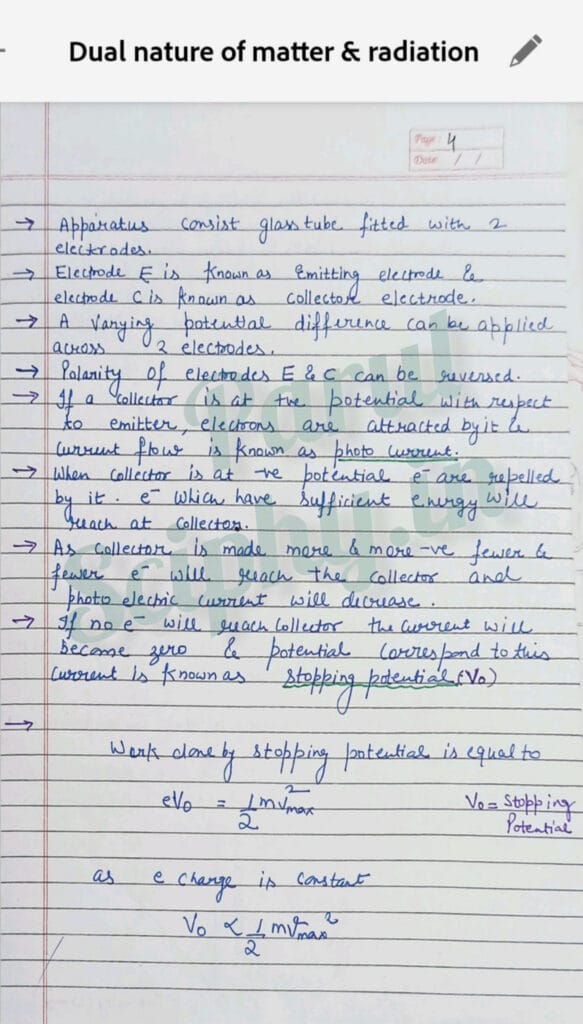 Dual nature of matter & radiation
Page: 4
Date / /
→ Apparatus consist glass tube fitted with 2
electrodes.
→ Electrode E is known as Emitting electrode &
electrode C is known as collector electrode.
→ A Varying potential difference can be applied
across 2 electrodes.
→ Polarity of electrodes E & C can be reversed.
→ If a collector is at +ve potential with respect
to emitter, electrons are attracted by it &
current flow is known as photo current.
→ When collector is at -ve potential e⁻ are repelled
by it. e⁻ which have sufficient energy will
reach at collector.
→ As collector is made more & more -ve fewer &
fewer e⁻ will reach the collector and
photo electric current will decrease.
→ If no e⁻ will reach collector the current will
become zero & potential correspond to this
current is known as stopping potential (V₀)
→
Work done by stopping potential is equal to
eV₀ = 1/2 mv²max
V₀ = Stopping
Potential
as e charge is constant
V₀ ∝ 1/2 mvmax²
Parul
Sciphy.in